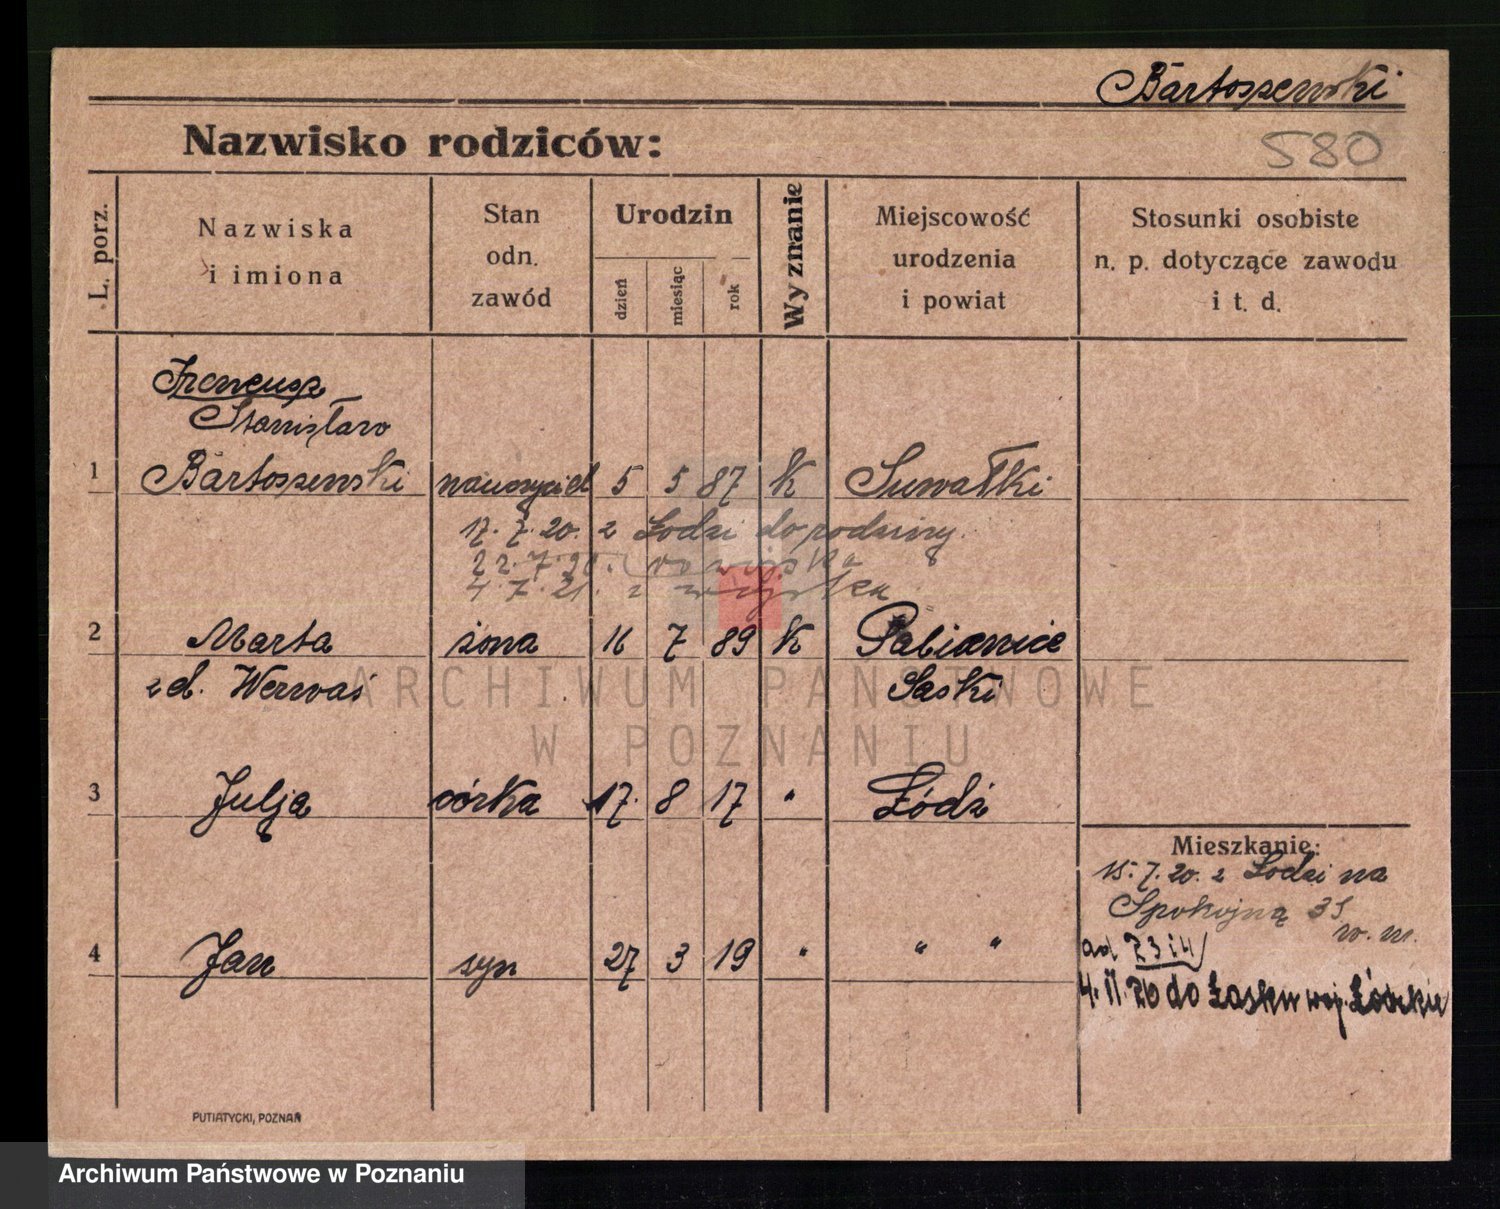 Bartoszewski
Nazwisko rodziców:
580
L. porz.
Nazwiska
i imiona
Stan
odn.
zawód
Urodzin
dzień
miesiąc
rok
Wyznanie
Miejscowość
urodzenia
i powiat
Stosunki osobiste
n. p. dotyczące zawodu
i t. d.
Ireneusz
Stanisław
1 Bartoszewski nauczyciel 5 5 87 k Suwałki
17. 7. 20. z Łodzi do rodziny.
22. 7. 20. do wojska
4. 7. 21. z wojska
2 Marta żona 16 7 89 k Pabianice
zd. Werwas Łaski
ARCHIWUM PAŃSTWOWE
W POZNANIU
3 Julja córka 17. 8 17 " Łódź
Mieszkanie:
15. 7. 20. z Łodzi na
Spokojną 35
w. m.
4 Jan syn 27 3 19 " " "
ad 23 i 4
4. II. 26 do Łasku woj. Łódzkie
PUTIATYCKI, POZNAŃ
Archiwum Państwowe w Poznaniu